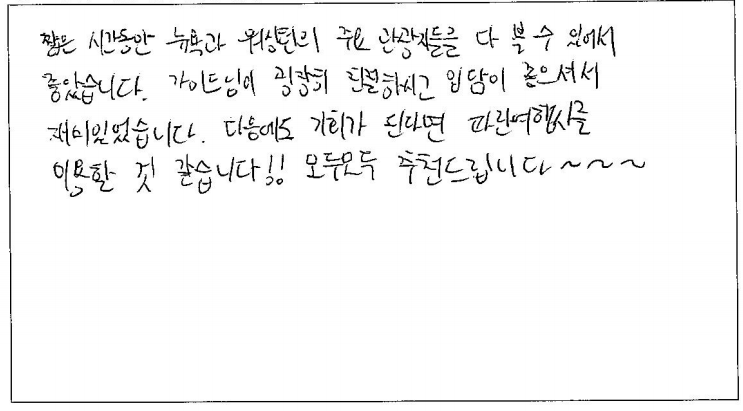 짧은 시간동안 뉴욕과 워싱턴의 주요 관광지들를 다 볼 수 있어서
좋았습니다. 가이드님이 굉장히 친절하시고 입담이 좋으셔서
재미있었습니다. 다음에도 기회가 된다면 파란여행사를
이용할 것 같습니다!! 모두모두 추천드립니다~~~